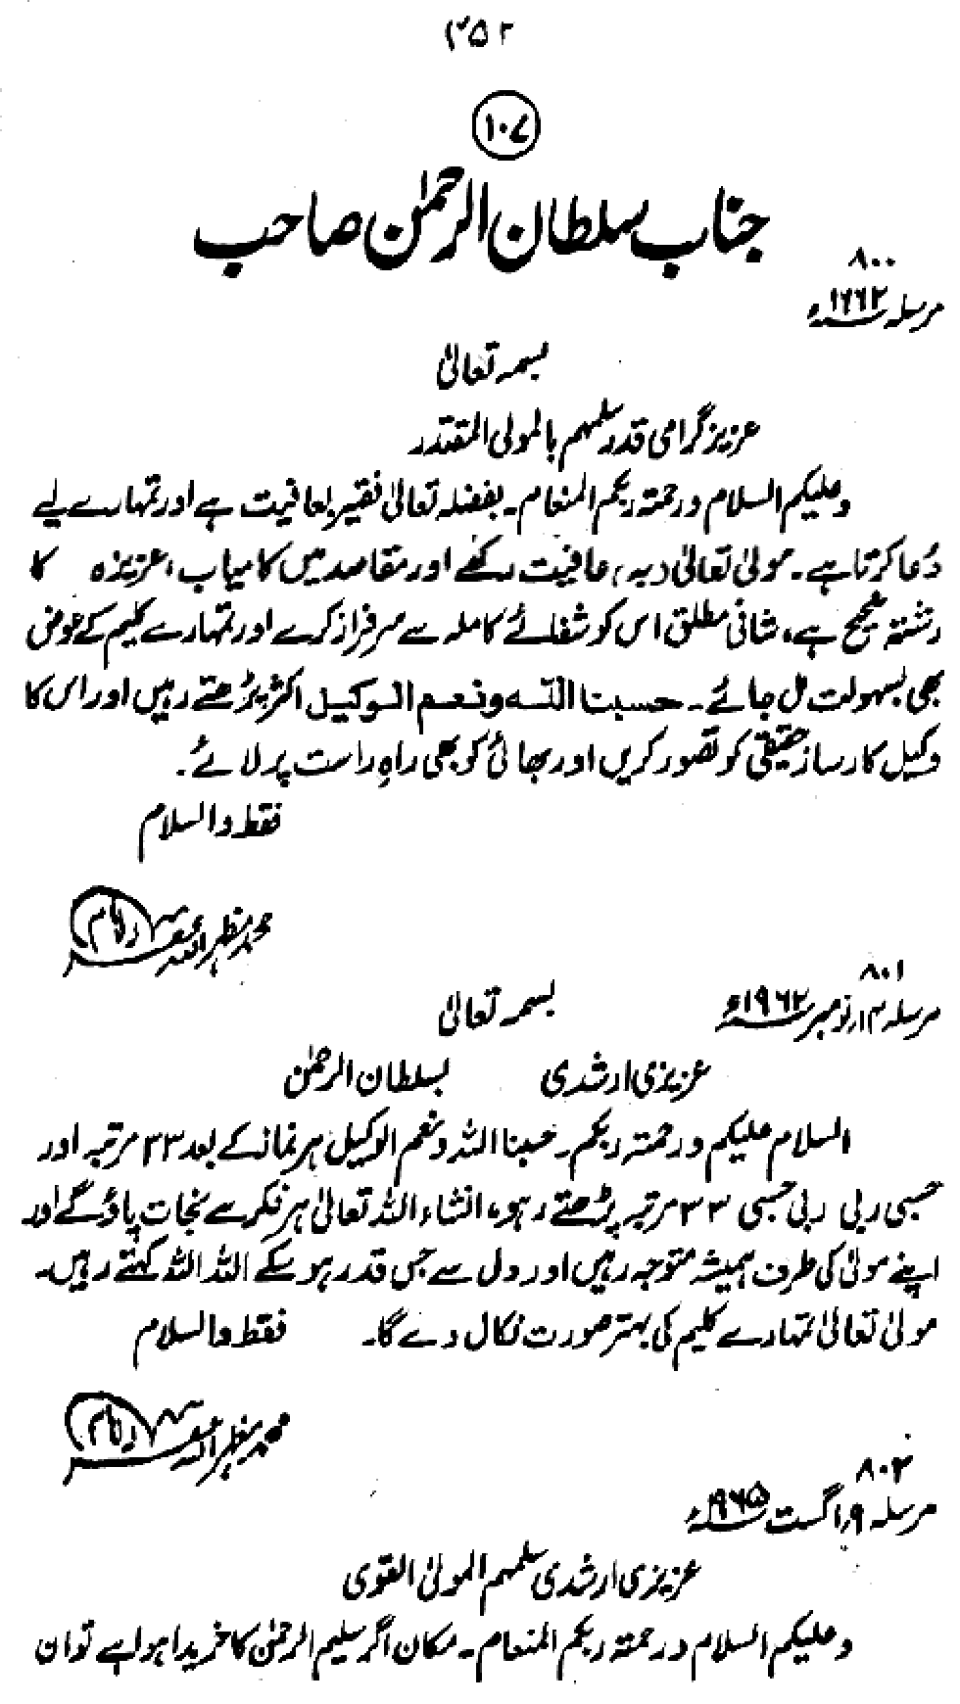 ۴۵۲
۱۰۷
جناب سلطان الرحمٰن صاحب
۸۰۰
مرسلہ ۱۹۶۲ء
بسمہ تعالیٰ
عزیز گرامی قدر سلمہم بالمولیٰ المقتدر
وعلیکم السلام ورحمتہ ربکم المنعام۔ بفضلہ تعالیٰ فقیر بعافیت ہے اور تمہارے لیے
دُعا کرتا ہے۔ مولیٰ تعالیٰ عافیت رکھے اور مقاصد میں کامیاب، عزیزہ کا
رشتہ صحیح ہے، شافیٔ مطلق اس کو شفائے کاملہ سے سرفراز کرے اور تمہارے کلیم کے عوض
بھی بسہولت مل جائے۔ حسبنا اللہ ونعم الوکیل اکثر پڑھتے رہیں اور اس کا
وکیل کارساز حقیقی کو تصور کریں اور بھائی کو بھی راہِ راست پر لائے۔
فقط والسلام
محمد مظہر اللہ
۸۰۱
مرسلہ ۱۳ نومبر ۱۹۶۲ء
بسمہ تعالیٰ
عزیزی ارشدی سلطان الرحمٰن
السلام علیکم ورحمتہ ربکم۔ حسبنا اللہ ونعم الوکیل ہر نماز کے بعد ۳۳ مرتبہ اور
حسبی ربی ربی حسبی ۳۳ مرتبہ پڑھتے رہو، انشاء اللہ تعالیٰ ہر فکر سے نجات پاؤ گے اور
اپنے مولیٰ کی طرف ہمیشہ متوجہ رہیں اور دل سے جس قدر ہو سکے اللہ اللہ کہتے رہیں۔
مولیٰ تعالیٰ تمہارے کلیم کی بہتر صورت نکال دے گا۔ فقط والسلام
محمد مظہر اللہ
۸۰۲
مرسلہ ۹ اگست ۱۹۶۵ء
عزیزی ارشدی سلمہم المولیٰ القوی
وعلیکم السلام ورحمتہ ربکم المنعام۔ مکان اگر سلیم الرحمٰن کا خریدا ہوا ہے تو ان